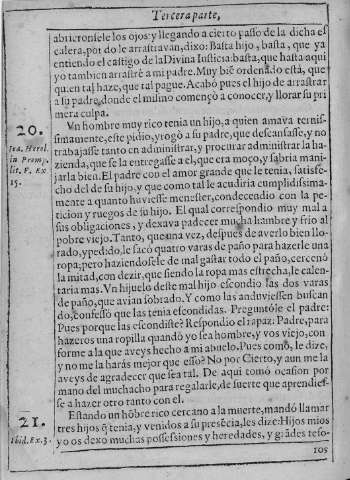 Tercera parte,
abrieronsele los ojos: y llegando a cierto passo de la dicha es
calera, por do le arrastravan, dixo: Basta hijo, basta, que ya
entiendo el castigo de la Divina Iusticia: basta, que hasta aqui
yo tambien arrastrè a mi padre. Muy biẽ ordenado està, que
quien tal haze, que tal pague. Acabò pues el hijo de arrastrar
a su padre, donde el mismo començò a conocer, y llorar su pri
mera culpa.
20.
Ioa. Herol.
in Promp.
lit. F. Ex
15.
Vn hombre muy rico tenia un hijo, a quien amava ternis-
simamente, este pidio, y rogò a su padre, que descansasse, y no
trabajasse tanto en administrar, y procurar administrar la ha
zienda, que se la entregasse a el, que era moço, y sabria mani-
jarla bien. El padre con el amor grande que le tenia, satisfe-
cho del de su hijo, y que como tal le acudiria cumplidissima-
mente a quanto huviesse menester, condecendio con la pe-
ticion y ruegos de su hijo. El qual correspondio muy mal a
sus obligaciones, y dexava padecer mucha hambre y frio al
pobre viejo. Tanto, que una vez, despues de averlo bien llo-
rado, y pedido, le sacò quatro varas de paño para hazerle una
ropa; pero haziendosele de mal gastar todo el paño, cercenò
la mitad, con dezir, que siendo la ropa mas estrecha, le calen-
taria mas. Vn hijuelo deste mal hijo escondio las dos varas
de paño, que avian sobrado. Y como las anduviessen buscan
do, confessò que las tenia escondidas. Preguntòle el padre:
Pues porque las escondiste? Respondio el rapaz: Padre, para
hazeros una ropilla quando yo sea hombre, y vos viejo, con-
forme a la que aveys hecho a mi abuelo. Pues como, le dize,
y no me la haràs mejor que esso? No por Cierto, y aun me la
aveys de agradecer que sea tal. De aqui tomò ocasion por
mano del muchacho para regalarle, de suerte que aprendies-
se a hazer otro tanto con el.
21.
Ibid. Ex. 3.
Estando un hõbre rico cercano a la muerte, mandò llamar
tres hijos q̃ tenia, y venidos a su presẽcia, les dize: Hijos mios
yo os dexo muchas possessiones y heredades, y grãdes teso-
105